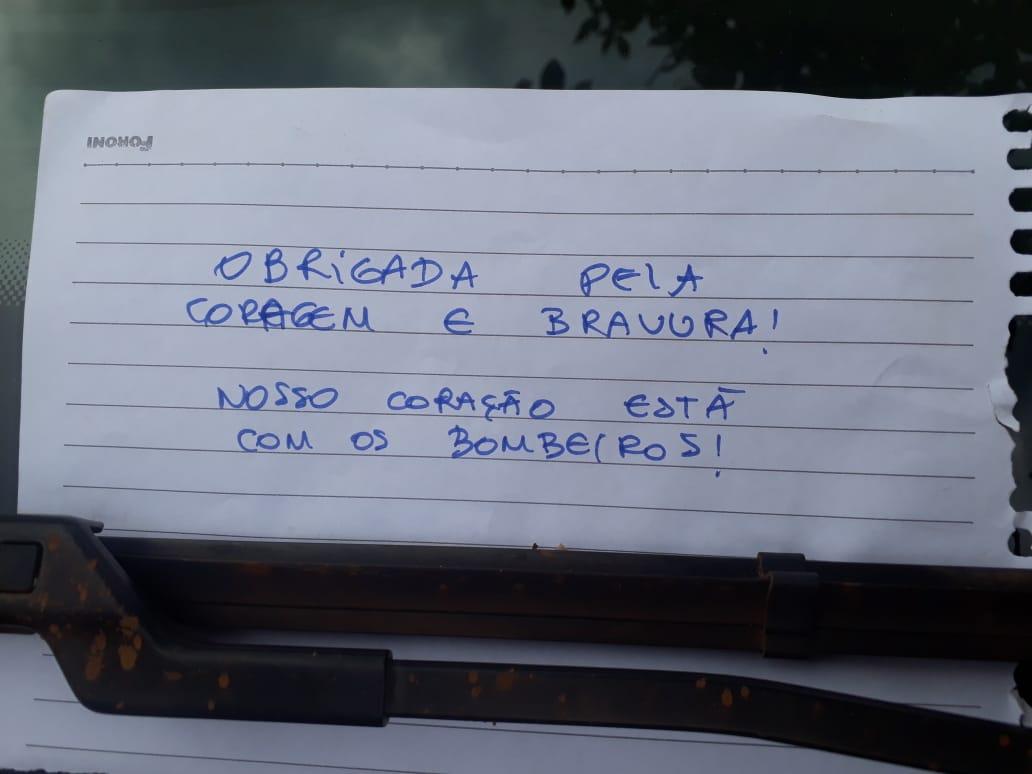 FORONI
OBRIGADA PELA
CORAGEM E BRAVURA!
NOSSO CORAÇÃO ESTÁ
COM OS BOMBEIROS!